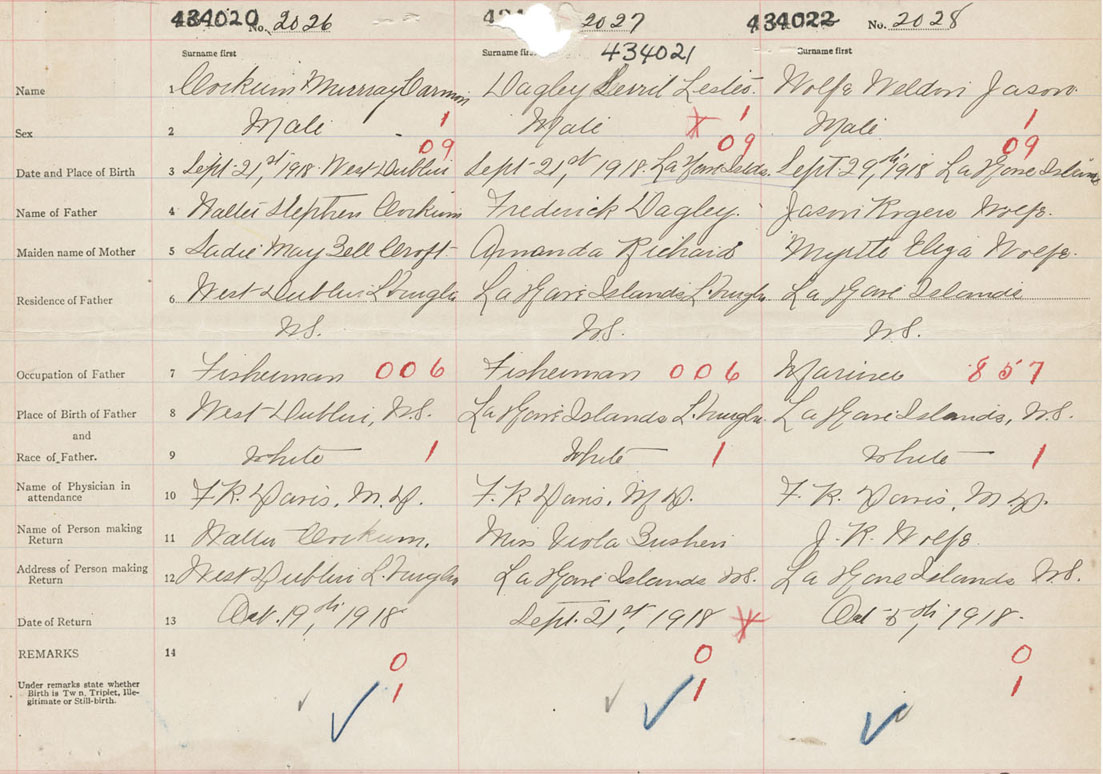 434020 No. 2026 2027 434022 No. 2028
Surname first Surname first 434021 Surname first
Name 1 Corkum Murray Carmon Dagley Lester Wolfe Weldon Jason
Sex 2 Male 1 Male 1 Male 1
09 09 09
Date and Place of Birth 3 Sept 21st, 1918 West Dublin Sept 21st 1918 La Have Islds. Sept 29th, 1918 La Have Islands
Name of Father 4 Walter Stephen Corkum Frederick Dagley. Jason Rogers Wolfe.
Maiden name of Mother 5 Sadie May Bell Croft Amanda Richard Myrtle Eliza Wolfe.
Residence of Father 6 West Dublin La Have Islands La Have Islands
N.S. N.S. N.S.
Occupation of Father 7 Fisherman 006 Fisherman 006 Mariner 857
Place of Birth of Father 8 West Dublin, N.S. La Have Islands La Have Islands, N.S.
and
Race of Father. 9 White 1 White 1 White 1
Name of Physician in
attendance 10 F.R. Davis, M.D. F.R. Davis, M.D. F.R. Davis, M.D.
Name of Person making
Return 11 Walter Corkum. Miss Viola Bushen J. R. Wolfe.
Address of Person making
Return 12 West Dublin La Have Islands N.S. La Have Islands N.S.
Date of Return 13 Oct. 19th, 1918 Sept. 21st, 1918 Oct 5th, 1918.
REMARKS 14
0 0 0
Under remarks state whether
Birth is Twin, Triplet, Ille-
gitimate or Still-birth.
1 1 1